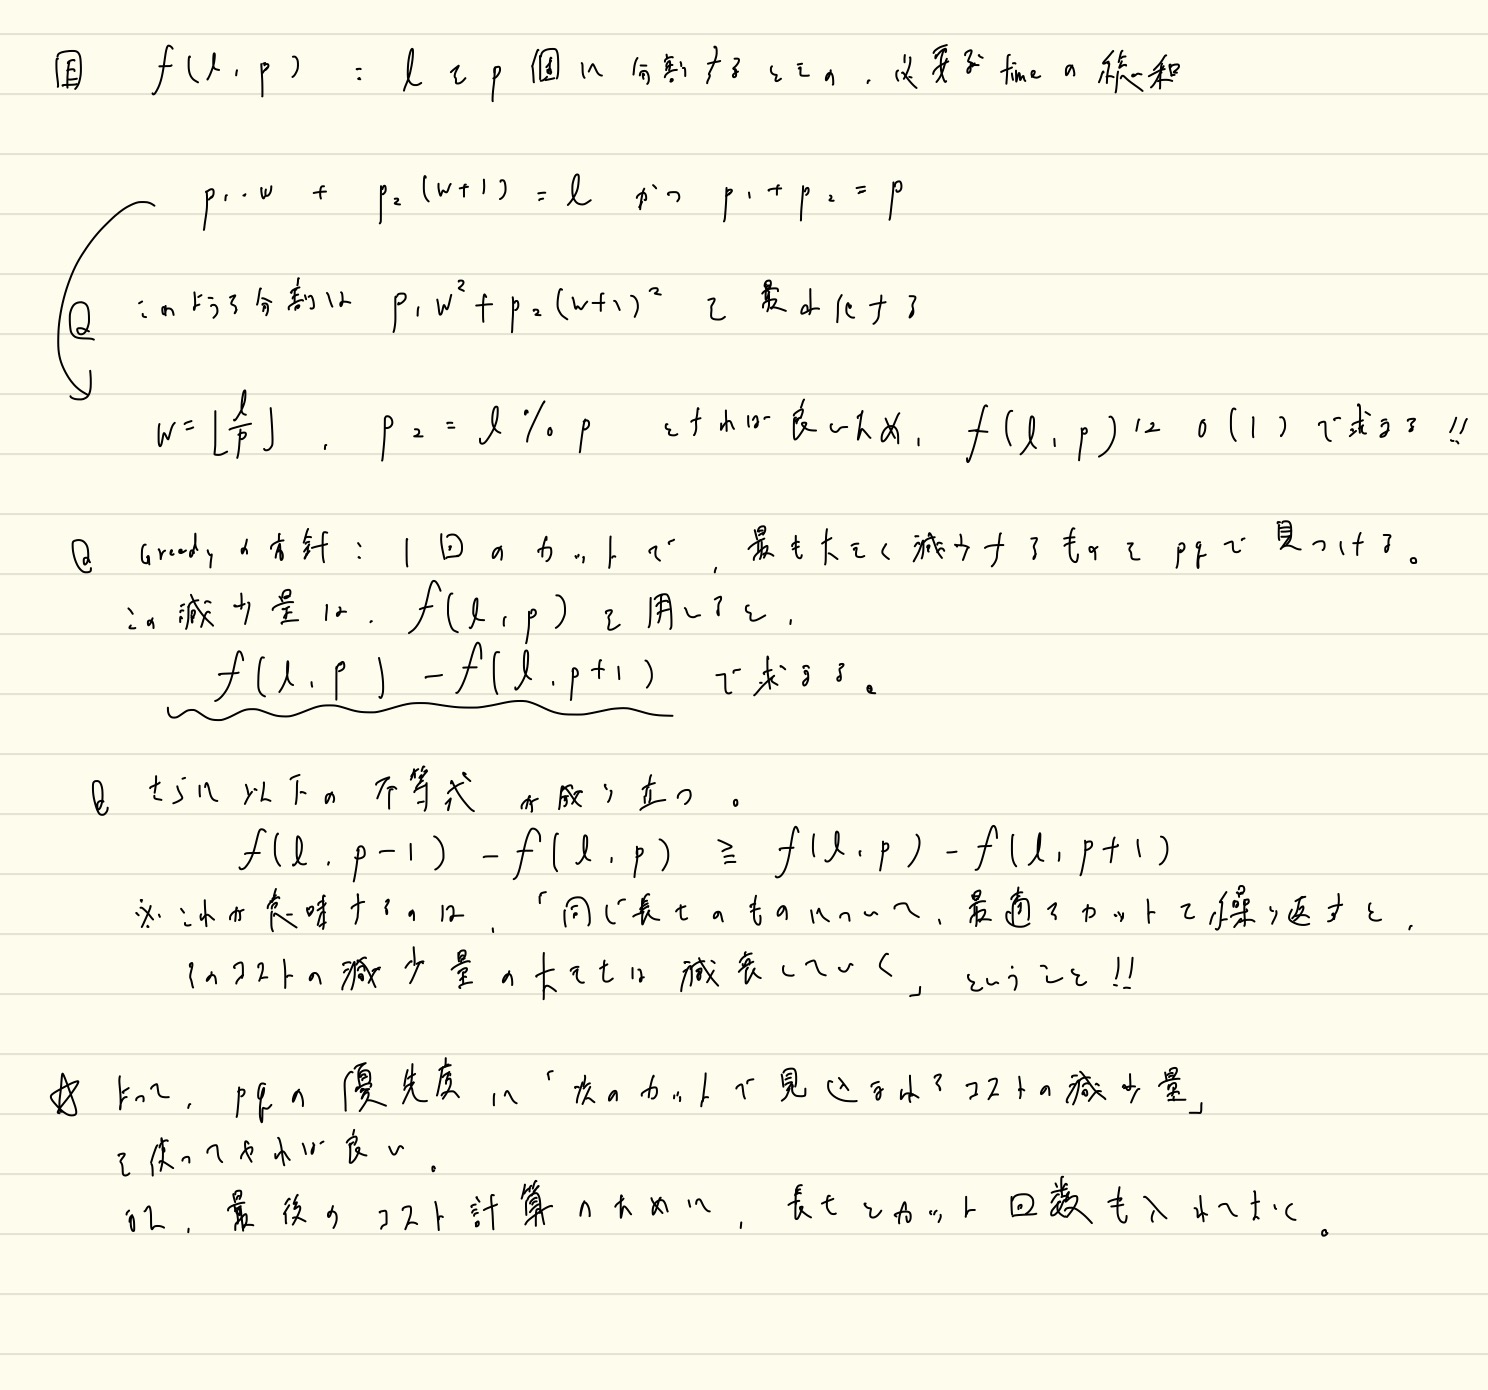 目 f(l, p) : l を p 個に分割するときの、必要な time の総和
p₁・w + p₂(w+1) = l かつ p₁ + p₂ = p
このような分割は p₁w² + p₂(w+1)² を最小化する
w = ⌊l/p⌋ , p₂ = l % p とすれば良いため、f(l, p) は O(1) で求まる!!
Greedy の方針: 1回のカットで、最も大きく減少するものを pq で見つける。
この減少量は、f(l, p) を用いると、
f(l, p) - f(l, p+1) で求まる。
さらに以下の不等式が成り立つ。
f(l, p-1) - f(l, p) ≧ f(l, p) - f(l, p+1)
※これが意味するのは、「同じ長さのものについて、最適なカットを繰り返すと、
そのコストの減少量の大きさは減衰していく」ということ!!
☆ よって、pq の優先度に「次のカットで見込まれるコストの減少量」
を使ってやれば良い。
また、最後のコスト計算のために、長さとカット回数も入れておく。